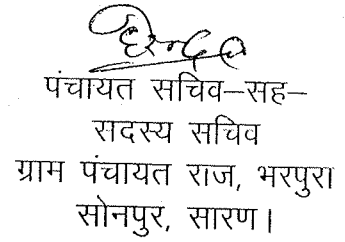 पंचायत सचिव–सह–
सदस्य सचिव
ग्राम पंचायत राज, भरपुरा
सोनपुर, सारण।